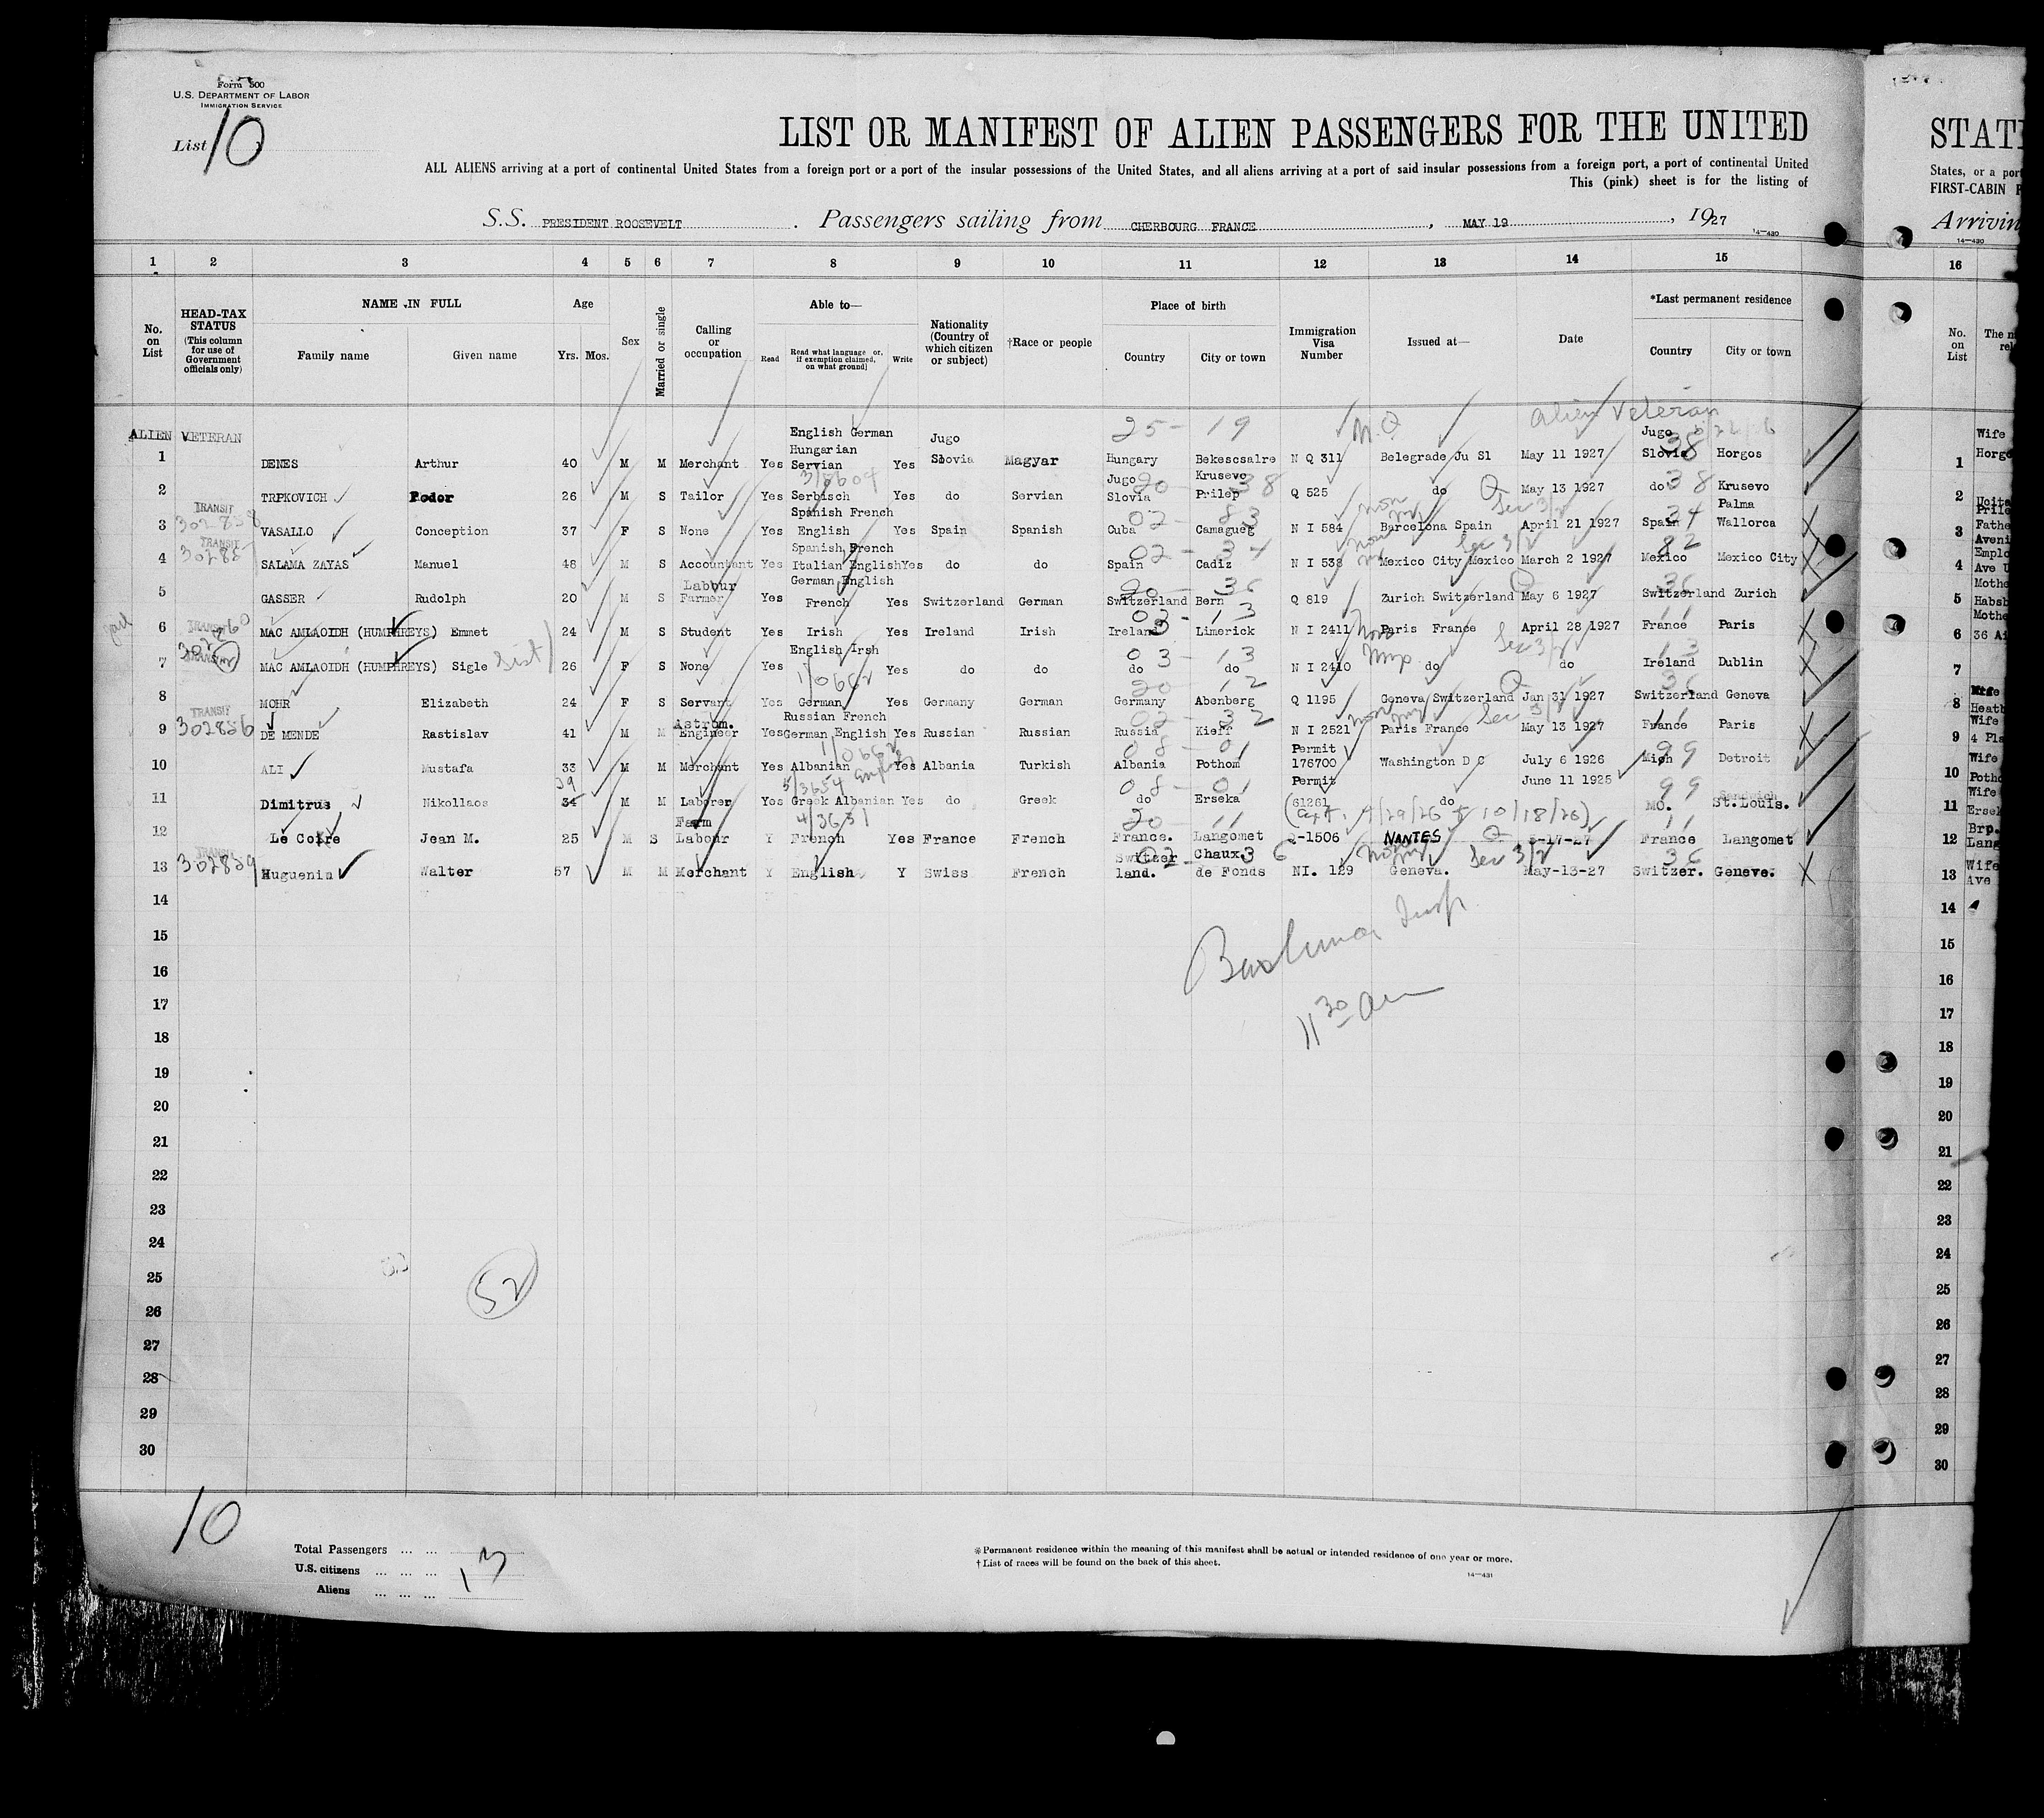 Form 500
U.S. DEPARTMENT OF LABOR
IMMIGRATION SERVICE
List 10
LIST OR MANIFEST OF ALIEN PASSENGERS FOR THE UNITED
ALL ALIENS arriving at a port of continental United States from a foreign port or a port of the insular possessions of the United States, and all aliens arriving at a port of said insular possessions from a foreign port, a port of continental United
This (pink) sheet is for the listing of
S.S. PRESIDENT ROOSEVELT . Passengers sailing from CHERBOURG FRANCE , MAY 19 , 1927
14-430
STAT
States, or a port
FIRST-CABIN P
Arrivin
14-430
1 2 3 4 5 6 7 8 9 10 11 12 13 14 15 16
No. on List
HEAD-TAX STATUS (This column for use of Government officials only)
NAME IN FULL
Family name Given name
Age
Yrs. Mos.
Sex
Married or single
Calling or occupation
Able to—
Read Read what language or, if exemption claimed, on what ground) Write
Nationality (Country of which citizen or subject)
†Race or people
Place of birth
Country City or town
Immigration Visa Number
Issued at—
Date
*Last permanent residence
Country City or town
No. on List
ALIEN VETERAN
alien Veteran
25- 19 N.Q
1 DENES Arthur 40 M M Merchant Yes English German Hungarian Servian Yes Jugo Slovia Magyar Hungary Bekescsalre N Q 311 Belegrade Ju Sl May 11 1927 Jugo Slovia 38 Horgos
2 TRPKOVICH Fodor 26 M S Tailor Yes Serbisch Yes do Servian Jugo Slovia Krusevo Prilep Q 525 do Q May 13 1927 do 38 Krusevo
TRANSIT 302858
3 VASALLO Conception 37 F S None Yes Spanish French English Yes Spain Spanish Cuba Camagueg N I 584 Barcelona Spain Sec 3/2 April 21 1927 Spain 34 Palma Wallorca
TRANSIT
4 SALAMA ZAYAS Manuel 48 M S Accountant Yes Spanish French Italian English Yes do do Spain Cadiz N I 538 Mexico City Mexico Sec 3/2 March 2 1927 Mexico 82 Mexico City
5 GASSER Rudolph 20 M S Labour Farmer Yes German English French Yes Switzerland German Switzerland Bern Q 819 Zurich Switzerland Q May 6 1927 Switzerland 36 Zurich
TRANSIT
6 MAC AMLAOIDH (HUMPHREYS) Emmet 24 M S Student Yes Irish Yes Ireland Irish Ireland Limerick N I 2411 Paris France April 28 1927 France 11 Paris
7 MAC AMLAOIDH (HUMPHREYS) Sigle Sist 26 F S None Yes English Irsh Yes do do do do N I 2410 do Sec 3/2 do Ireland 13 Dublin
8 MOHR Elizabeth 24 F S Servant Yes German Yes Germany German Germany Abenberg Q 1195 Geneva Switzerland Q Jan 31 1927 Switzerland 36 Geneva
TRANSIT 302856
9 DE MENDE Rastislav 41 M M Astrom. Engineer Yes Russian French German English Yes Russian Russian Russia Kieff N I 2521 Paris France Sec 3/2 May 13 1927 France 11 Paris
10 ALI Mustafa 33 M M Merchant Yes Albanian Yes Albania Turkish Albania Pothom Permit 176700 Washington D C July 6 1926 Mich 99 Detroit
11 Dimitrus Nikollaos 34 29 M M Laborer Yes Greek Albanian Yes do Greek do Erseka Permit 61261 do June 11 1925 MO. 99 Sandwich St.Louis.
12 Le Coire Jean M. 25 M S Farm Labour Y French Yes France French France. Langomet Q-1506 NANTES Q 5-17-27 France 11 Langomet
TRANSIT 302859
13 Huguenin Walter 57 M M Merchant Y English Y Swiss French Switzer land. Chaux de Fonds NI. 129 Geneva. Sec 3/2 May-13-27 Switzer. 36 Geneve.
14
15
16
17
18
19
20
21
22
23
24
25
26
27
28
29
30
11 30 am
52
10
Total Passengers ... ...
U.S. citizens ... ... ...
Aliens ... ... ...
13
*Permanent residence within the meaning of this manifest shall be actual or intended residence of one year or more.
†List of races will be found on the back of this sheet.
14-431
1 Wife Horgo
2
3 Fathe
4 Ave U
5 Habsb
6 36 Ai
7
8 Heath
9 4 Pla
10 Potho
11 Ersek
12 Lang
13 Ave
14
15
16
17
18
19
20
21
22
23
24
25
26
27
28
29
30